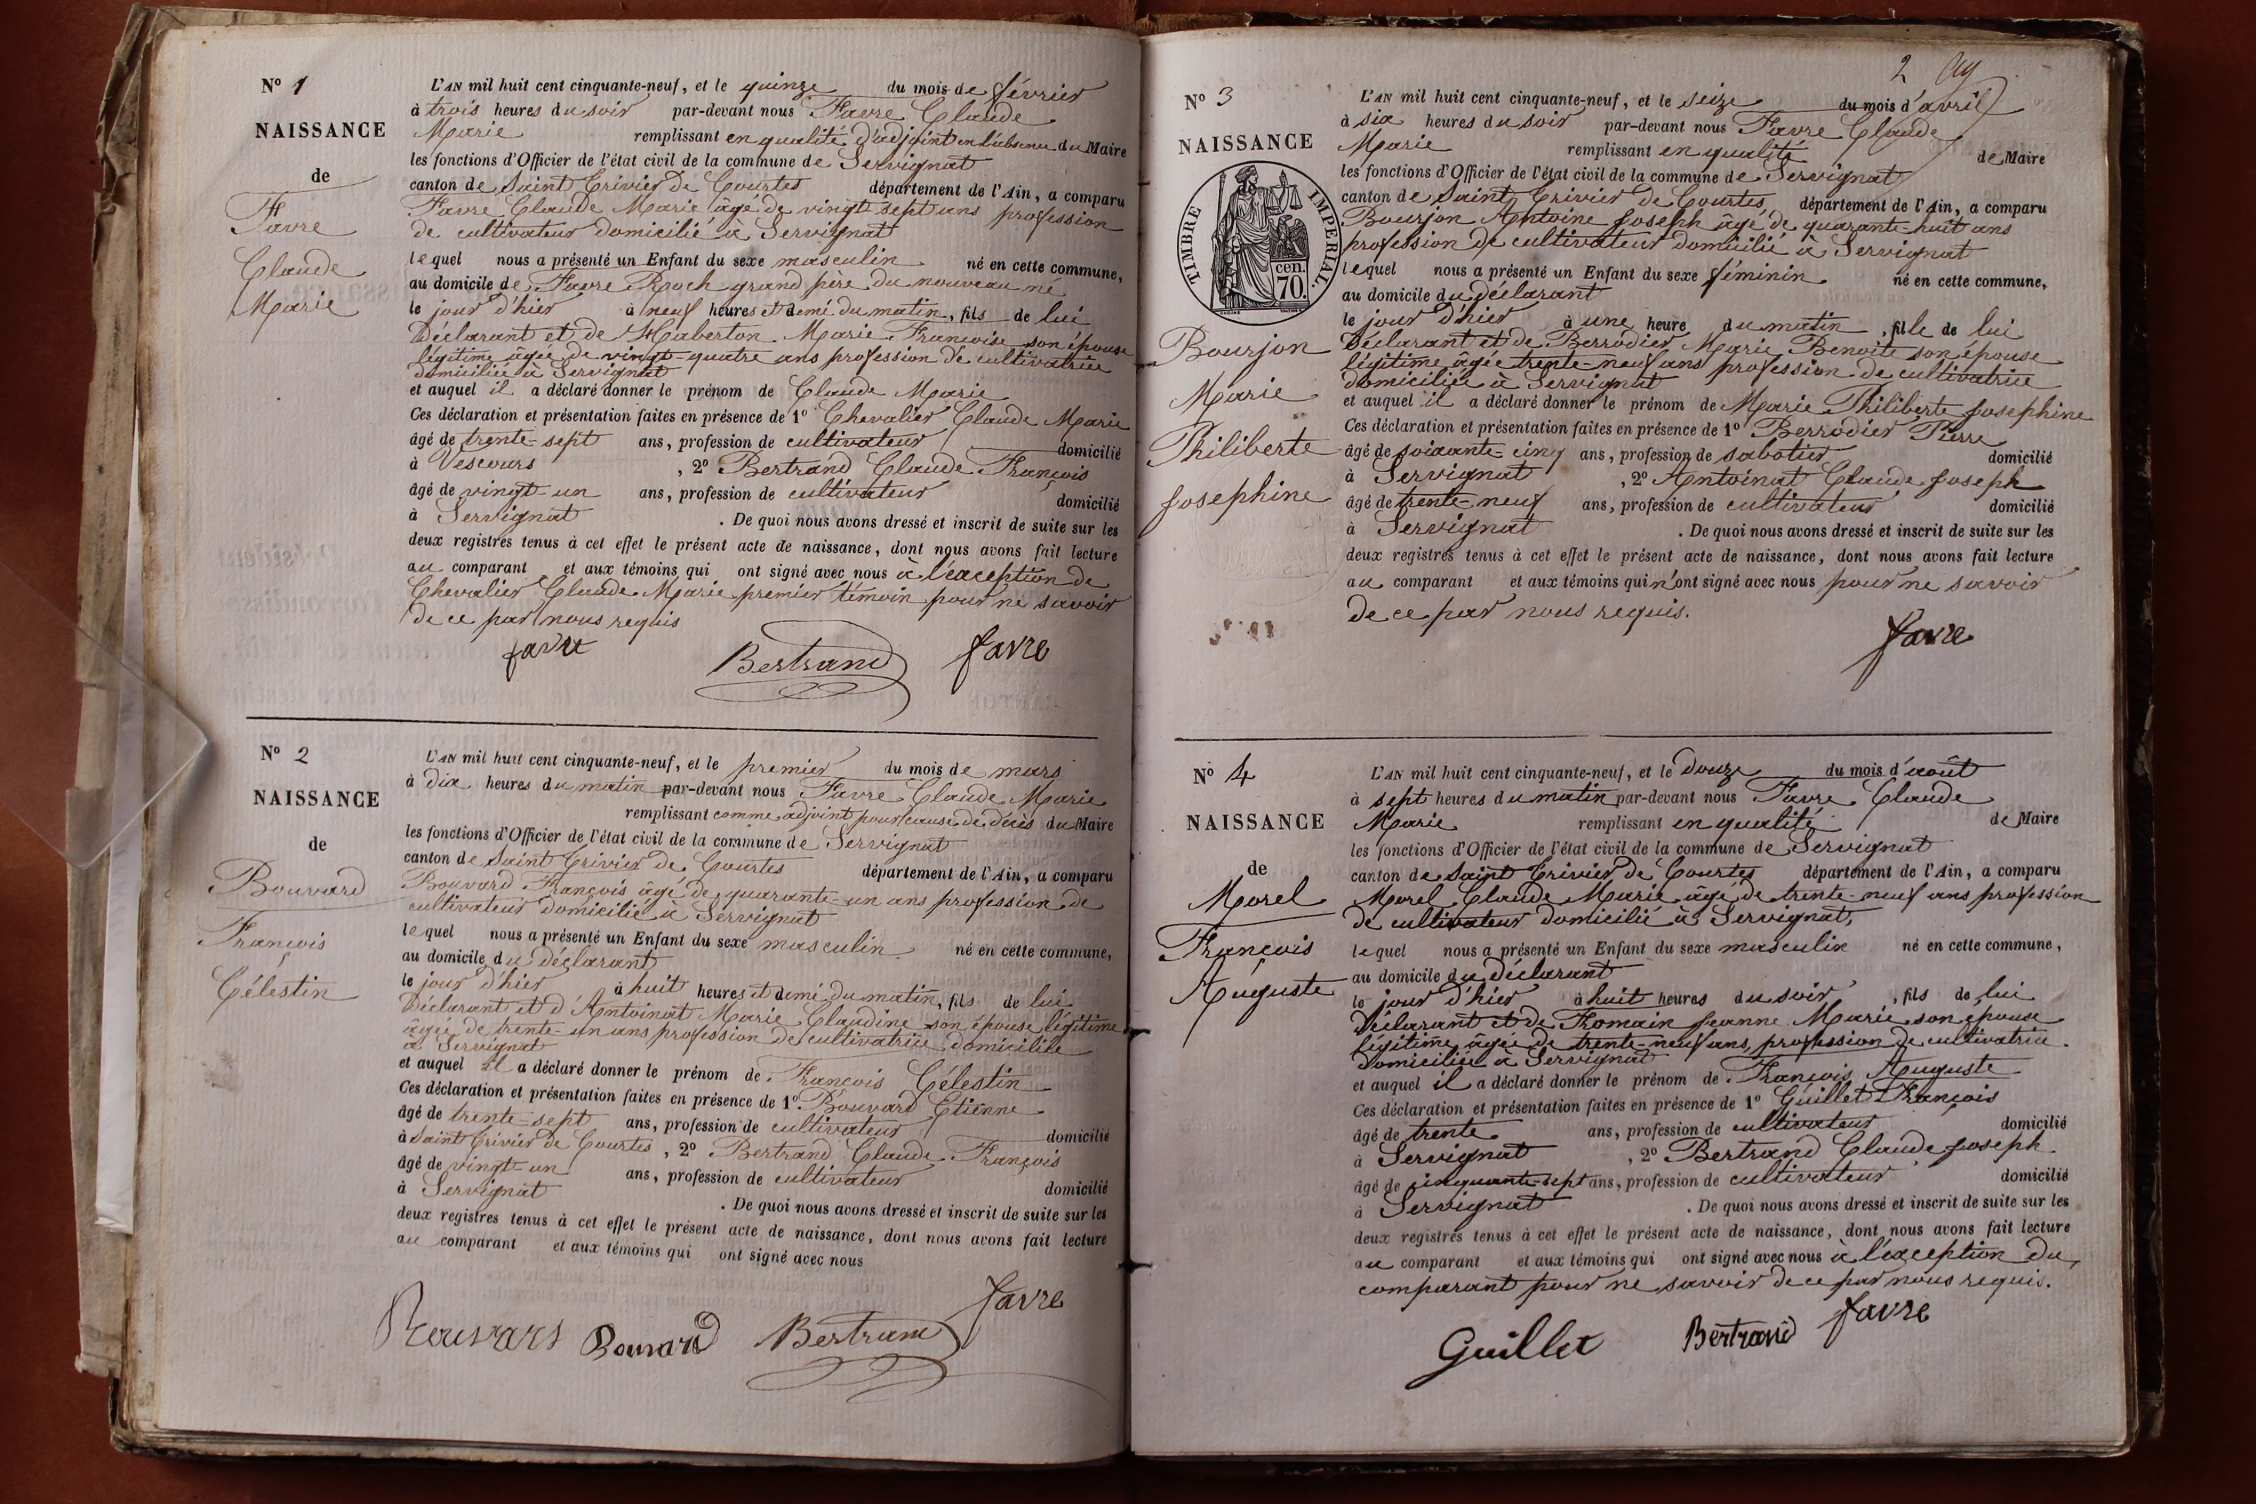 Nº 1
NAISSANCE
de
Favre
Claude
Marie
L'AN mil huit cent cinquante-neuf, et le quinze du mois de février
à trois heures du soir par-devant nous Favre Claude
Marie remplissant en qualité d'adjoint en l'absence du Maire
les fonctions d'Officier de l'état civil de la commune de Servignat
canton de Saint Trivier de Courtes département de l'Ain, a comparu
Favre Claude Marie âgé de vingt sept ans profession
de cultivateur domicilié à Servignat
lequel nous a présenté un Enfant du sexe masculin né en cette commune,
au domicile de Favre Roch grand père du nouveau né
le jour d'hier à neuf heures et demi du matin, fils de lui
Déclarant et de Haberton Marie Françoise son épouse
légitime âgée de vingt-quatre ans profession de cultivatrice
domiciliée à Servignat
et auquel il a déclaré donner le prénom de Claude Marie
Ces déclaration et présentation faites en présence de 1º Chevalier Claude Marie
âgé de trente-sept ans, profession de cultivateur domicilié
à Vescours , 2º Bertrand Claude François
âgé de vingt-un ans, profession de cultivateur domicilié
à Servignat . De quoi nous avons dressé et inscrit de suite sur les
deux registres tenus à cet effet le présent acte de naissance, dont nous avons fait lecture
au comparant et aux témoins qui ont signé avec nous à l'exception de
Chevalier Claude Marie premier témoin pour ne savoir
de ce par nous requis
favre Bertrand favre
Nº 2
NAISSANCE
de
Bouvard
François
Célestin
L'AN mil huit cent cinquante-neuf, et le premier du mois de mars
à dix heures du matin par-devant nous Favre Claude Marie
remplissant comme adjoint pour cause de décès du Maire
les fonctions d'Officier de l'état civil de la commune de Servignat
canton de Saint Trivier de Courtes département de l'Ain, a comparu
Bouvard François âgé de quarante-un ans profession de
cultivateur domicilié à Servignat
lequel nous a présenté un Enfant du sexe masculin né en cette commune,
au domicile du déclarant
le jour d'hier à huit heures et demi du matin, fils de lui
Déclarant et d'Antoinat Marie Claudine son épouse légitime
âgée de trente-un ans profession de cultivatrice domiciliée
à Servignat
et auquel il a déclaré donner le prénom de François Célestin
Ces déclaration et présentation faites en présence de 1º Bouvard Etienne
âgé de trente-sept ans, profession de cultivateur domicilié
à Saint Trivier de Courtes , 2º Bertrand Claude François
âgé de vingt-un ans, profession de cultivateur domicilié
à Servignat . De quoi nous avons dressé et inscrit de suite sur les
deux registres tenus à cet effet le présent acte de naissance, dont nous avons fait lecture
au comparant et aux témoins qui ont signé avec nous
Bouvard Bertrand favre
2
Nº 3
NAISSANCE
TIMBRE IMPERIAL.
cen.
70.
Bourjon
Marie
Philiberte
Josephine
L'AN mil huit cent cinquante-neuf, et le seize du mois d'avril
à six heures du soir par-devant nous Favre Claude
Marie remplissant en qualité de Maire
les fonctions d'Officier de l'état civil de la commune de Servignat
canton de Saint Trivier de Courtes département de l'Ain, a comparu
Bourjon Antoine Joseph âgé de quarante-huit ans
profession de cultivateur domicilié à Servignat
lequel nous a présenté un Enfant du sexe féminin né en cette commune,
au domicile du déclarant
le jour d'hier à une heure du matin, fille de lui
Déclarant et de Berrodier Marie Benoite son épouse
légitime âgée trente-neuf ans profession de cultivatrice
domiciliée à Servignat
et auquel il a déclaré donner le prénom de Marie Philiberte Josephine
Ces déclaration et présentation faites en présence de 1º Berrodier Pierre
âgé de soixante-cinq ans, profession de sabotier domicilié
à Servignat , 2º Antoinat Claude Joseph
âgé de trente-neuf ans, profession de cultivateur domicilié
à Servignat . De quoi nous avons dressé et inscrit de suite sur les
deux registres tenus à cet effet le présent acte de naissance, dont nous avons fait lecture
au comparant et aux témoins qui n'ont signé avec nous pour ne savoir
de ce par nous requis.
favre
Nº 4
NAISSANCE
de
Morel
François
Auguste
L'AN mil huit cent cinquante-neuf, et le douze du mois d'août
à sept heures du matin par-devant nous Favre Claude
Marie remplissant en qualité de Maire
les fonctions d'Officier de l'état civil de la commune de Servignat
canton de Saint Trivier de Courtes département de l'Ain, a comparu
Morel Claude Marie âgé de trente-neuf ans profession
de cultivateur domicilié à Servignat,
lequel nous a présenté un Enfant du sexe masculin né en cette commune,
au domicile du déclarant
le jour d'hier à huit heures du soir, fils de lui
Déclarant et de Romain Jeanne Marie son épouse
légitime âgée de trente-neuf ans, profession de cultivatrice
domiciliée à Servignat
et auquel il a déclaré donner le prénom de François Auguste
Ces déclaration et présentation faites en présence de 1º Guillet François
âgé de trente ans, profession de cultivateur domicilié
à Servignat , 2º Bertrand Claude Joseph
âgé de cinquante-sept ans, profession de cultivateur domicilié
à Servignat . De quoi nous avons dressé et inscrit de suite sur les
deux registres tenus à cet effet le présent acte de naissance, dont nous avons fait lecture
au comparant et aux témoins qui ont signé avec nous à l'exception du
comparant pour ne savoir de ce par nous requis.
Guillet Bertrand favre